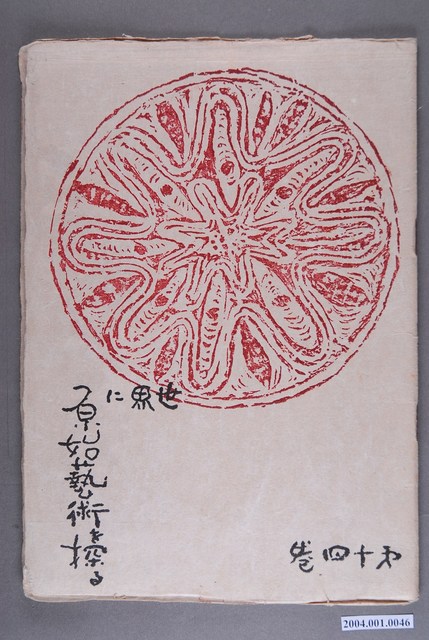 世界に
原始藝術を探る
第十四卷
2004.001.0046